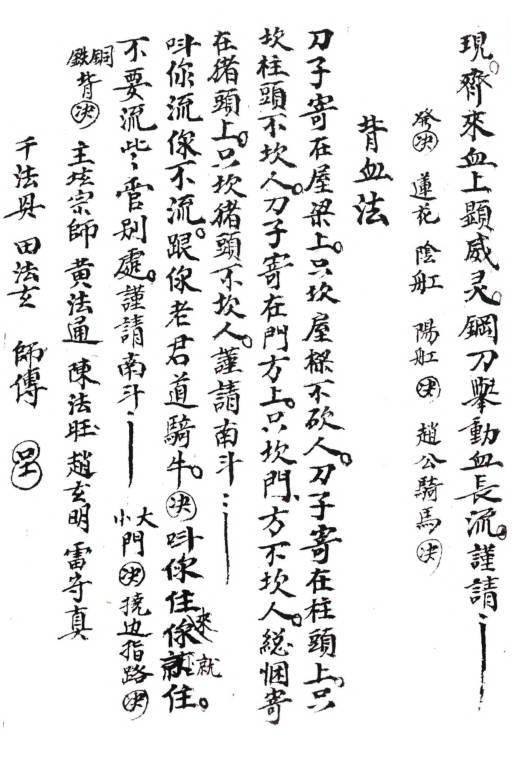 現。齊來血上顯威灵。鋼刀舉動血長流。謹請
發決 蓮花 陰舡 陽舡 決 趙公騎馬 決
背血法
刀子寄在屋梁上。只坎屋樑不砍人。刀子寄在柱頭上。只
坎柱頭不坎人。刀子寄在門方上。只坎門方不坎人。総悃寄
在猪頭上。只坎猪頭不坎人。謹請南斗
呌你流你不流。跟你老君道騎牛。決 呌你住你來就住。
不要流些〻 別處。謹請南斗 大小門 決 邊指路 決
銅鉄背 決 主坛宗師 黄法通 陳法旺 趙玄明 雷守真
千法 田法玄 師傳